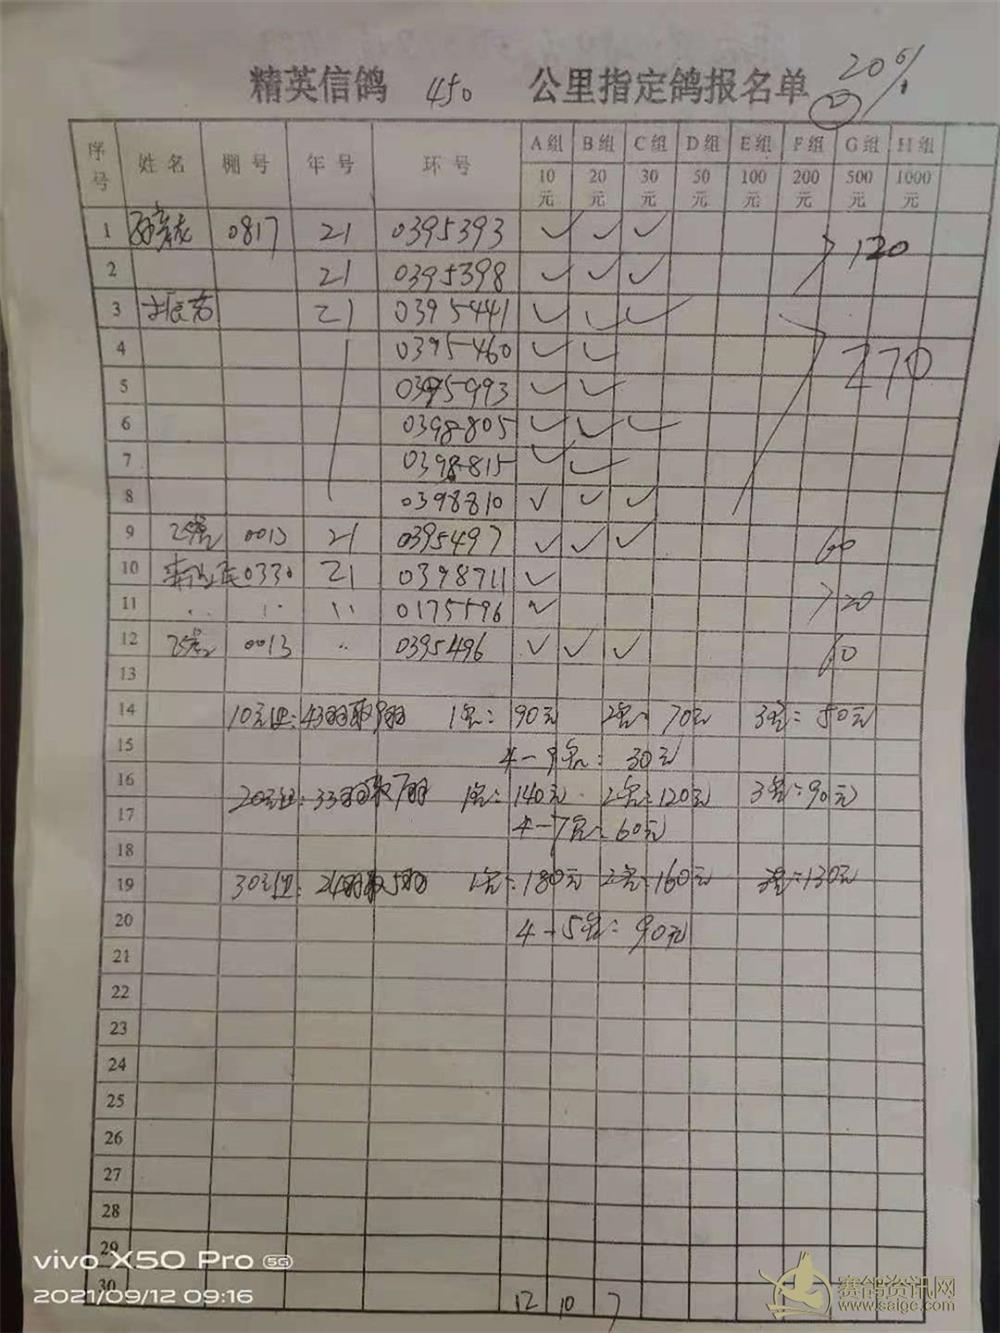 精英信鸽 450 公里指定鸽报名单 20%
②
序号 姓名 棚号 年号 环号 A组 B组 C组 D组 E组 F组 G组 H组
10元 20元 30元 50元 100元 200元 500元 1000元
1 0817 21 0395393 ✓ ✓ ✓ 120
2 21 0395398 ✓ ✓ ✓
3 21 0395441 ✓ ✓ ✓
4 0395460 ✓ ✓ 270
5 0395993 ✓ ✓
6 0398805 ✓ ✓ ✓
7 0398815 ✓ ✓
8 0398810 ✓ ✓ ✓
9 0013 21 0395497 ✓ ✓ ✓ 60
10 0330 21 0398711 ✓
11 0175596 ✓ 20
12 0013 0395496 ✓ ✓ ✓ 60
13
14 10元组：43羽取9羽 1名：90元 2名：70元 3名：50元
15 4-9名：30元
16 20元组：33羽取7羽 1名：140元 2名：120元 3名：90元
17 4-7名：60元
18
19 30元组：24羽取5羽 1名：180元 2名：160元 3名：130元
20 4-5名：90元
21
22
23
24
25
26
27
28
29
30 12 10 7
vivo X50 Pro 5G
2021/09/12 09:16
赛鸽资讯网
www.saige.com